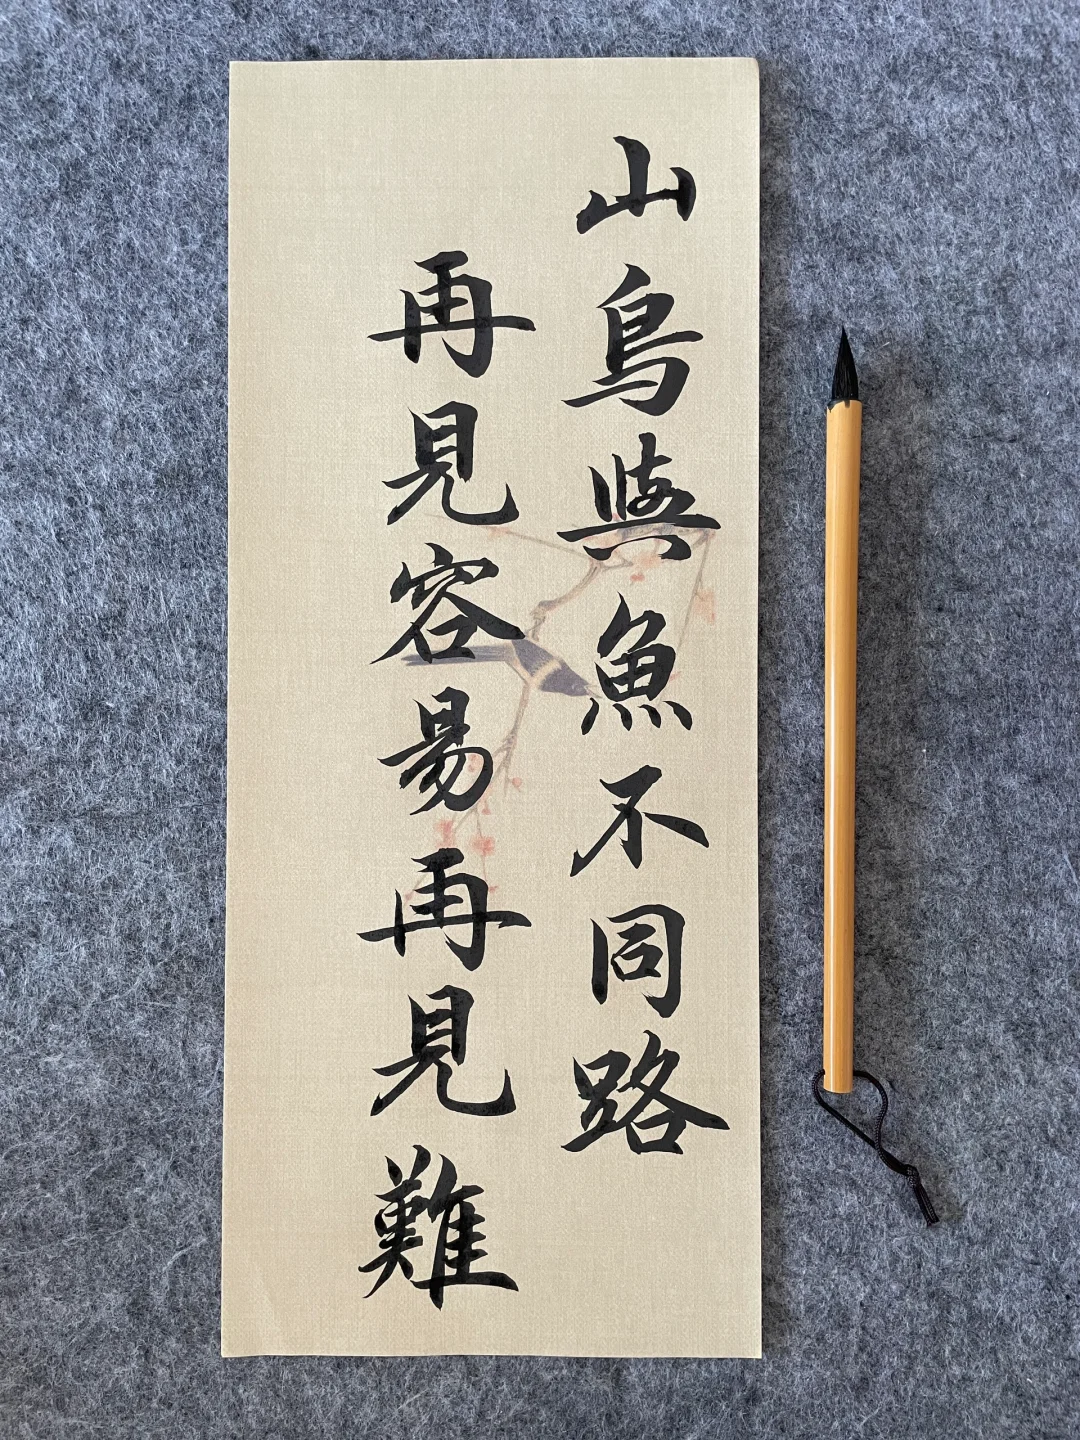 山鳥與魚不同路
再見容易再見難